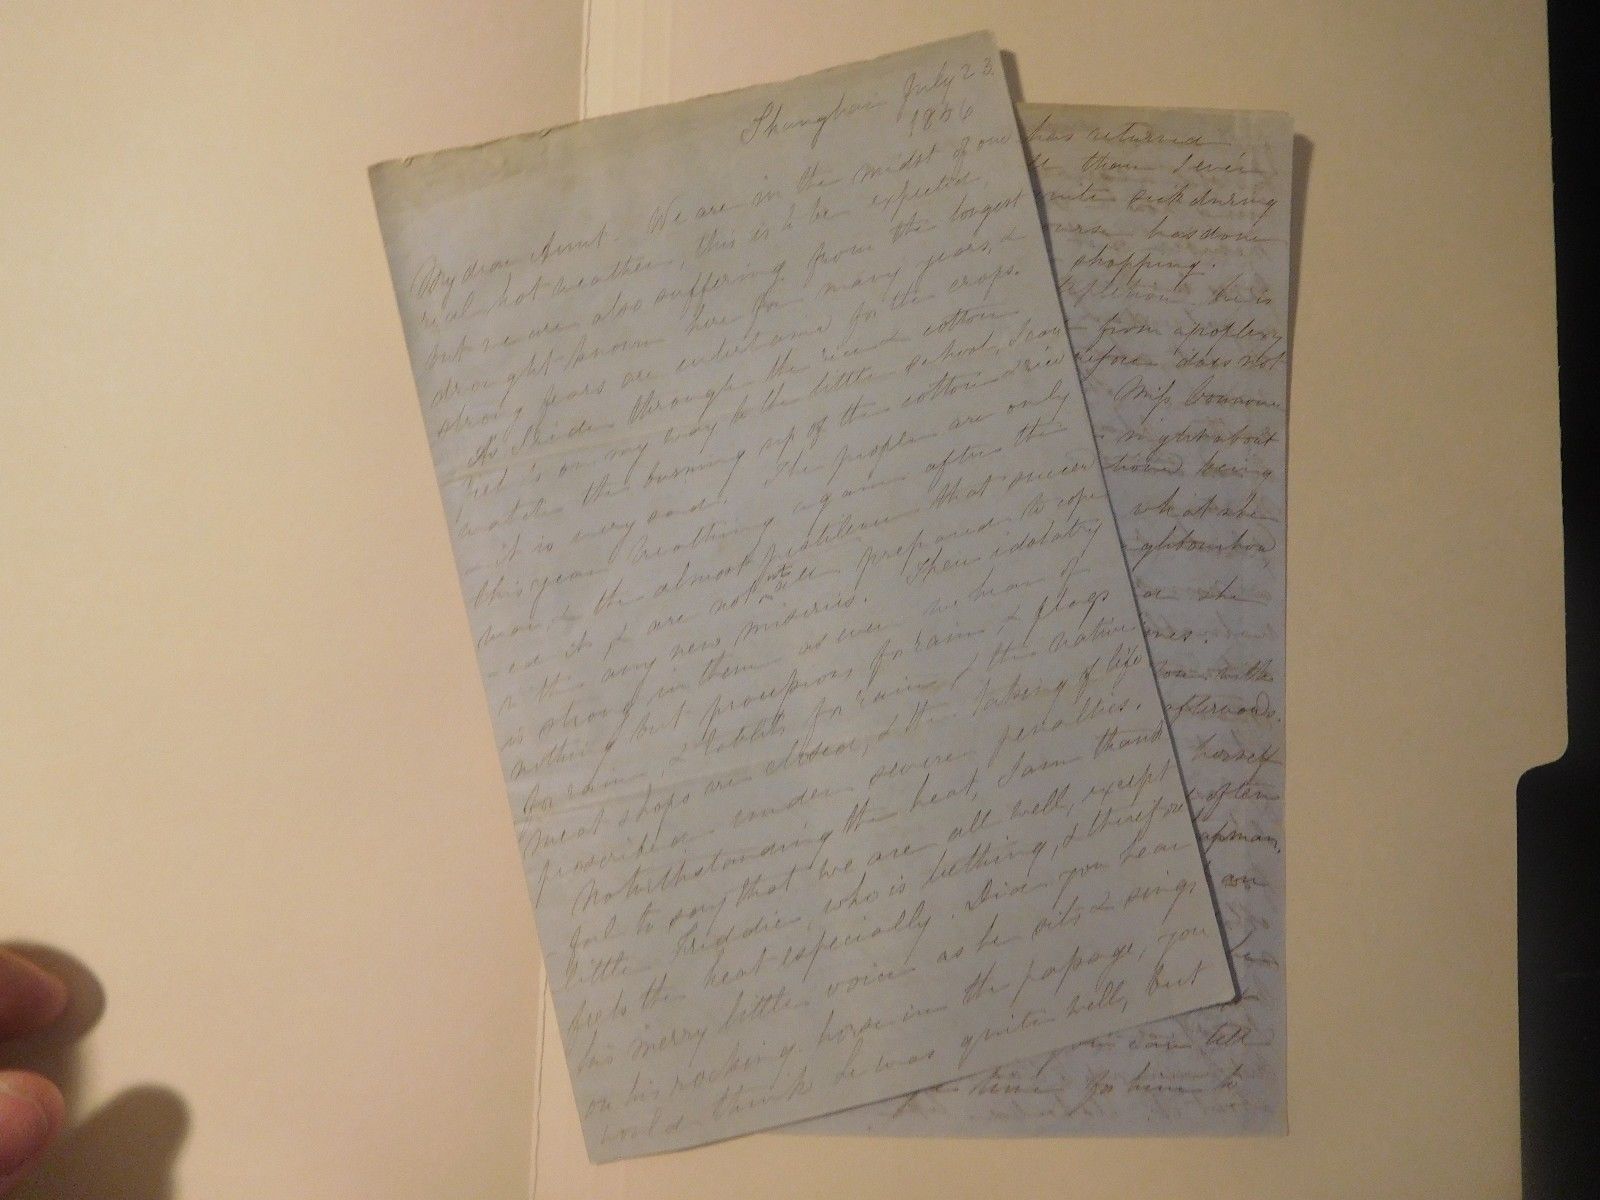 Shanghai July 23.
1856
My dear Aunt- We are in the midst of our
real hot weather, this is to be expected,
but we are also suffering from the longest
drought known here for many years, &
strong fears are entertained for the crops.
As I ride through the rice & cotton
fields on my way to the little school, I can
watch the burning up of the cotton & rice
- it is very sad. The people are only
this year breathing again after the
war, & the almost pestilence that succeed
-ed it, & are not well prepared to cope
with any new miseries. Their idolatry
is strong in them as ever we hear of
nothing but processions for rain & flags
for rain, & tablets for rain & the native
meat shops are closed, & the taking of life
proscribed under severe penalties.
Notwithstanding the heat, I am thank
ful to say that we are all well, except
little Freddie, who is teething, & therefore
feels the heat especially. Did you hear
his merry little voice as he sits & sings
on his rocking horse in the passage, you
would think he was quite well, but
has returned
than seven
quite sick during
nurse has done
shopping.
he is
from apoplexy
before does not
Miss
night about
being
what she
she
with
afterwards.
herself
often
can tell
time for him to